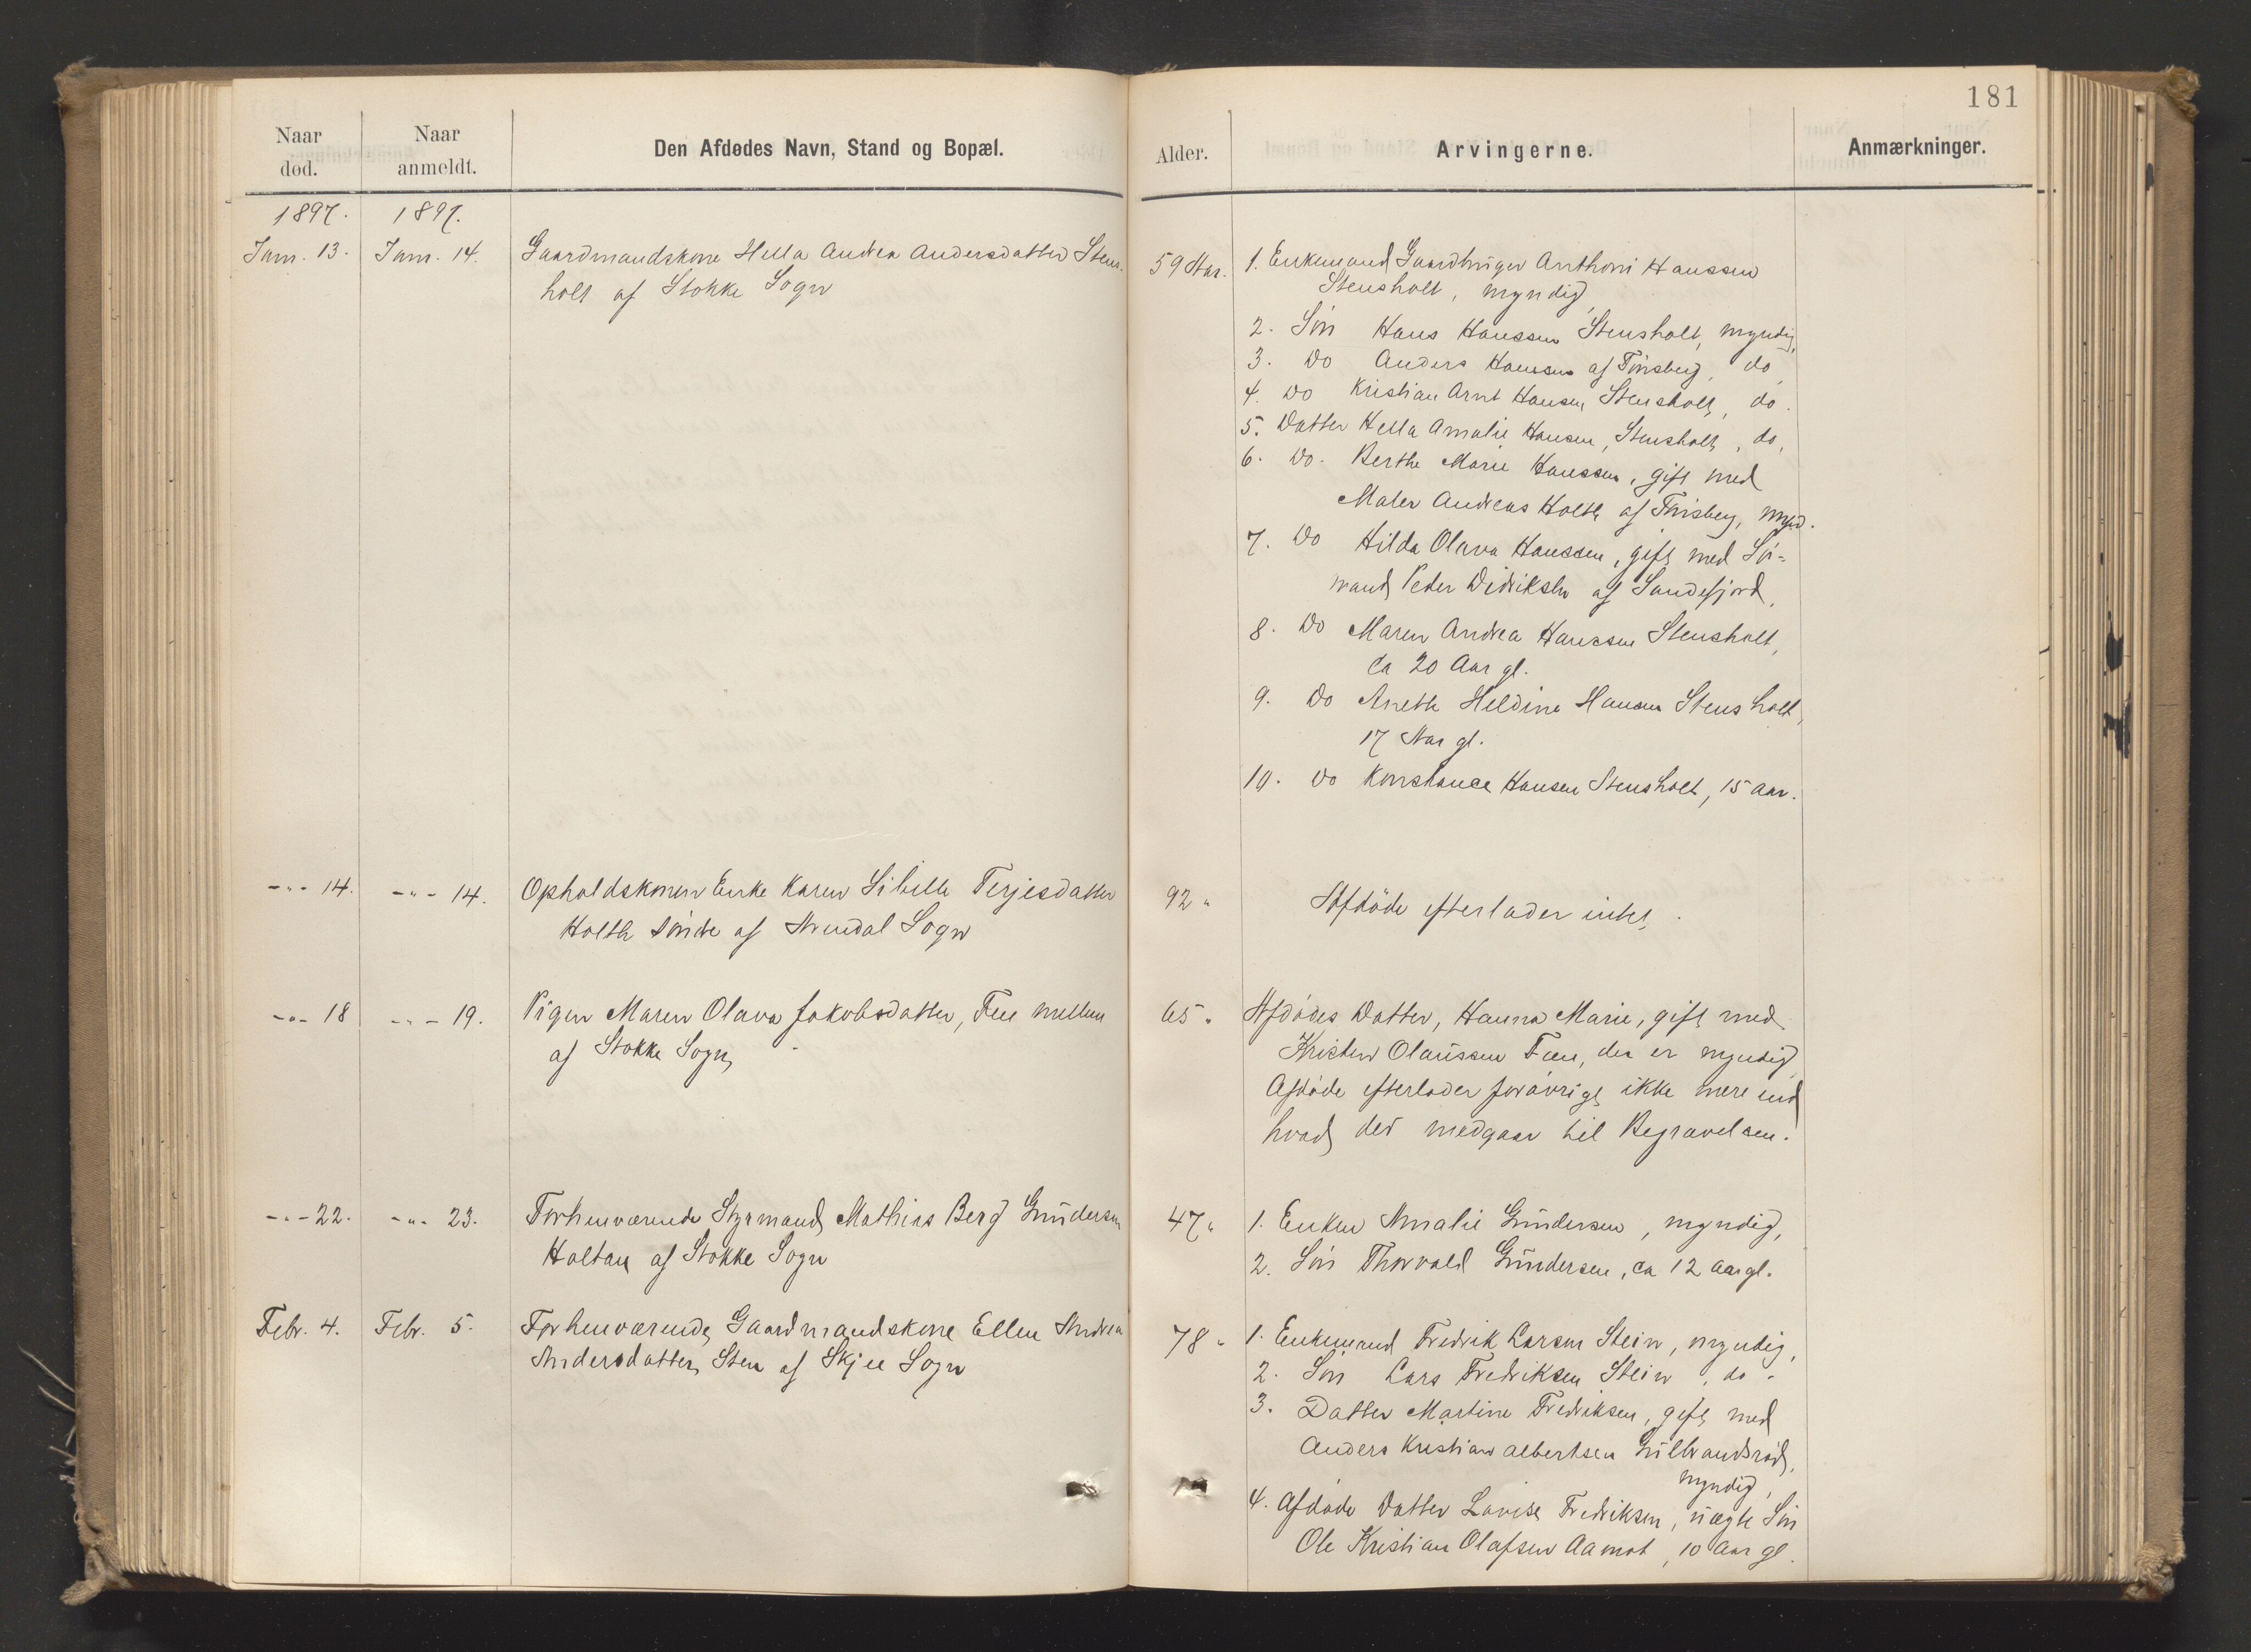 181
Naar død.
Naar anmeldt.
Den Afdødes Navn, Stand og Bopæl.
Alder.
Arvingerne.
Anmærkninger.
1897. 1897.
Jan. 13. Jan. 14. Gaardmandskone Hella Andrea Andersdatter Stens-
holt af Stokke Sogn
59 Aar. 1. Enkemand Gaardbruger Anthoni Hanssen
Stensholt, myndig,
2. Søn Hans Hanssen Stensholt, myndig,
3. Do Anders Hanssen af Tønsberg, do,
4. Do Kristian Arnt Hansen Stensholt, do.
5. Datter Hella Amalie Hansen, Stensholt, do,
6. Do. Berthe Marie Hanssen, gift med
Maler Andreas Holth af Tønsberg, mynd.
7. Do Hilda Olava Hanssen, gift med Sø-
mand Peder Didriksen af Sandefjord,
8. Do Maren Andrea Hanssen Stensholt,
ca 20 Aar gl.
9. Do Anette Heldine Hansen Stensholt,
17 Aar gl.
10. Do Konstance Hansen Stensholt, 15 Aar.
-"- 14. -"- 14. Opholdskonen Enke Karen Sibelle Terjesdatter
Holth søndre af Arendal Sogn
92 " Afdøde efterlader intet.
-"- 18 -"- 19. Pigen Maren Olava Jakobsdatter, Feen mellem
af Stokke Sogn
65 " Afdødes Datter, Hanna Marie, gift med
Kristen Olaussen Feen, der er myndig
Afdøde efterlader forøvrigt ikke mere end
hvad der medgaar til Begravelsen.
-"- 22. -"- 23. Forhenværende Styrmand Mathias Berg Gundersen
Holtan af Stokke Sogn
47 " 1. Enken Amalie Gundersen, myndig,
2. Søn Thorvald Gundersen, ca 12 Aar gl.
Febr. 4. Febr. 5. Forhenværende Gaardmandskone Ellen Andrea
Andersdatter Sten af Skjee Sogn
78 " 1. Enkemand Fredrik Larsen Stein, myndig,
2. Søn Lars Fredriksen Stein, do.
3. Datter Martine Fredriksen, gift med
Anders Kristian Albertsen Gulbrandsrød,
myndig,
4. Afdøde Datter Lovise Fredriksen, uægte Søn
Ole Kristian Olafsen Aamot, 10 Aar gl.